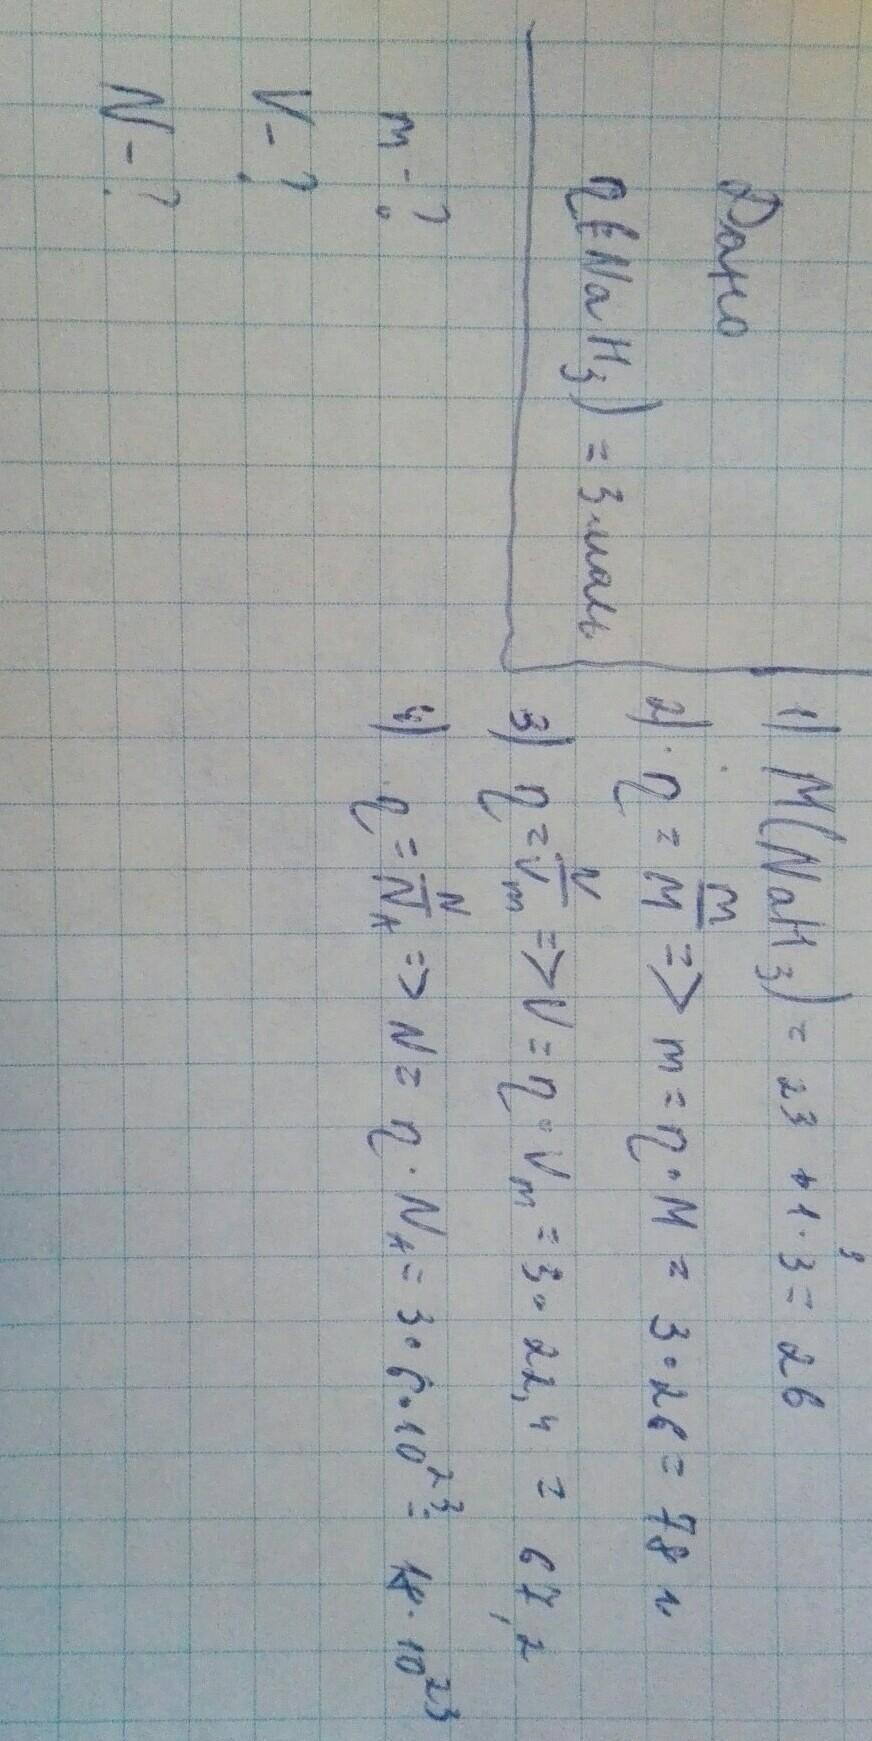 Дано
η(NaH₃) = 3 моль
m - ?
V - ?
N - ?
1) M(NaH₃) = 23 + 1 · 3 = 26
2) η = m/M => m = η · M = 3 · 26 = 78 г
3) η = V/Vₘ => V = η · Vₘ = 3 · 22,4 = 67,2
4) η = N/N_A => N = η · N_A = 3 · 6 · 10²³ = 18 · 10²³